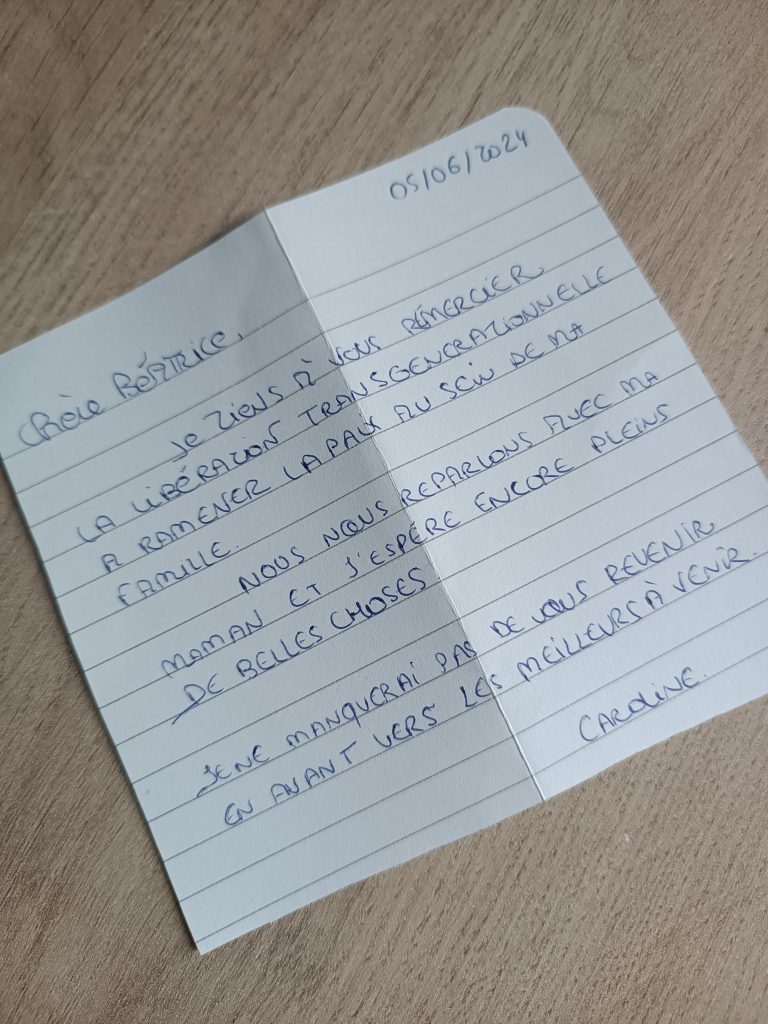 05/06/2024
Chère Béatrice,
Je tiens à vous remercier
la libération transgenerationnelle
a ramener la paix au sein de ma
famille.
Nous nous reparlons avec ma
maman et j'espère encore pleins
de belles choses.
Je ne manquerai pas de vous revenir
en avant vers les meilleurs à venir.
Caroline.